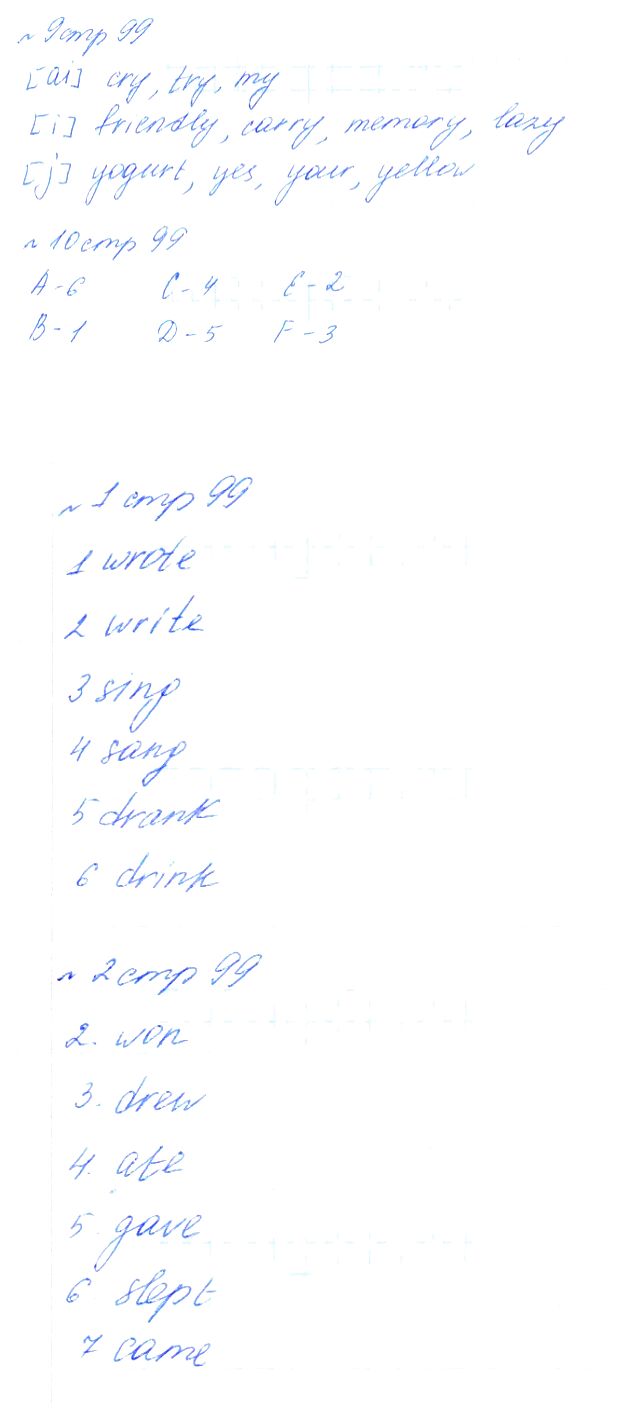 ~ 9 стр 99
[ai] cry, try, my
[i] friendly, carry, memory, lazy
[j] yogurt, yes, your, yellow
~ 10 стр 99
A-6 C-4 E-2
B-1 D-5 F-3
~ 1 стр 99
1 wrote
2 write
3 sing
4 sang
5 drank
6 drink
~ 2 стр 99
2. won
3. drew
4. ate
5. gave
6 slept
7 came